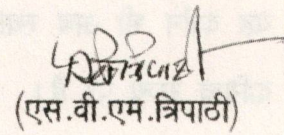 (एस.वी.एम.त्रिपाठी)